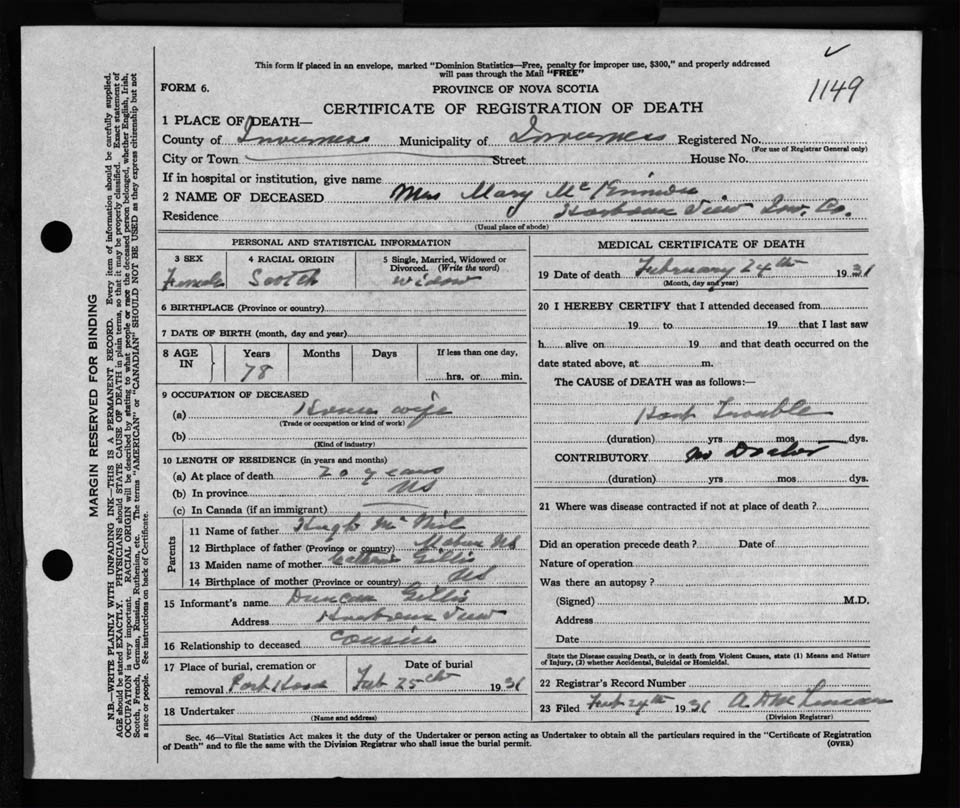 This form if placed in an envelope, marked "Dominion Statistics—Free, penalty for improper use, $300," and properly addressed
will pass through the Mail "FREE"
1149
FORM 6.
PROVINCE OF NOVA SCOTIA
CERTIFICATE OF REGISTRATION OF DEATH
1 PLACE OF DEATH—
County of Inverness Municipality of Inverness Registered No.
(For use of Registrar General only)
City or Town Street House No.
If in hospital or institution, give name
2 NAME OF DECEASED Mrs Mary McKinnon
Residence Harbour View Inv. Co.
(Usual place of abode)
PERSONAL AND STATISTICAL INFORMATION
3 SEX 4 RACIAL ORIGIN 5 Single, Married, Widowed or
Divorced. (Write the word)
Female Scotch Widow
6 BIRTHPLACE (Province or country)
7 DATE OF BIRTH (month, day and year)
8 AGE IN Years Months Days If less than one day,
78 hrs. or min.
9 OCCUPATION OF DECEASED
(a) House wife
(Trade or occupation or kind of work)
(b)
(Kind of industry)
10 LENGTH OF RESIDENCE (in years and months)
(a) At place of death 20 years
(b) In province NS
(c) In Canada (if an immigrant)
Parents
11 Name of father Hugh McNeil
12 Birthplace of father (Province or country) Mabou NS
13 Maiden name of mother Gillis
14 Birthplace of mother (Province or country) NS
15 Informant's name Duncan Gillis
Address Harbour View
16 Relationship to deceased Cousin
17 Place of burial, cremation or Date of burial
removal Port Hood Feb 25th 1931
18 Undertaker
(Name and address)
MEDICAL CERTIFICATE OF DEATH
19 Date of death February 24th 1931
(Month, day and year)
20 I HEREBY CERTIFY that I attended deceased from
19 to 19 that I last saw
h alive on 19 and that death occurred on the
date stated above, at m.
The CAUSE of DEATH was as follows:—
Heart Trouble
(duration) yrs mos dys.
CONTRIBUTORY no Doctor
(duration) yrs mos dys.
21 Where was disease contracted if not at place of death?
Did an operation precede death? Date of
Nature of operation
Was there an autopsy?
(Signed) M.D.
Address
Date
State the Disease causing Death, or in death from Violent Causes, state (1) Means and Nature
of Injury, (2) whether Accidental, Suicidal or Homicidal.
22 Registrar's Record Number
23 Filed Feb 24th 1931 A.
(Division Registrar)
Sec. 46—Vital Statistics Act makes it the duty of the Undertaker or person acting as Undertaker to obtain all the particulars required in the "Certificate of Registration
of Death" and to file the same with the Division Registrar who shall issue the burial permit.
(OVER)
MARGIN RESERVED FOR BINDING
N.B.—WRITE PLAINLY WITH UNFADING INK—THIS IS A PERMANENT RECORD. Every item of information should be carefully supplied.
AGE should be stated EXACTLY. PHYSICIANS should STATE CAUSE OF DEATH in plain terms, so that it may be properly classified. Exact statement of
OCCUPATION is very important. RACIAL ORIGIN will be described by stating to what people or race the deceased person belonged, whether English, Irish,
Scotch, French, German, Russian, Ruthenian, etc. The terms "AMERICAN" or "CANADIAN" SHOULD NOT BE USED as they express citizenship but not
a race or people. See instructions on back of Certificate.